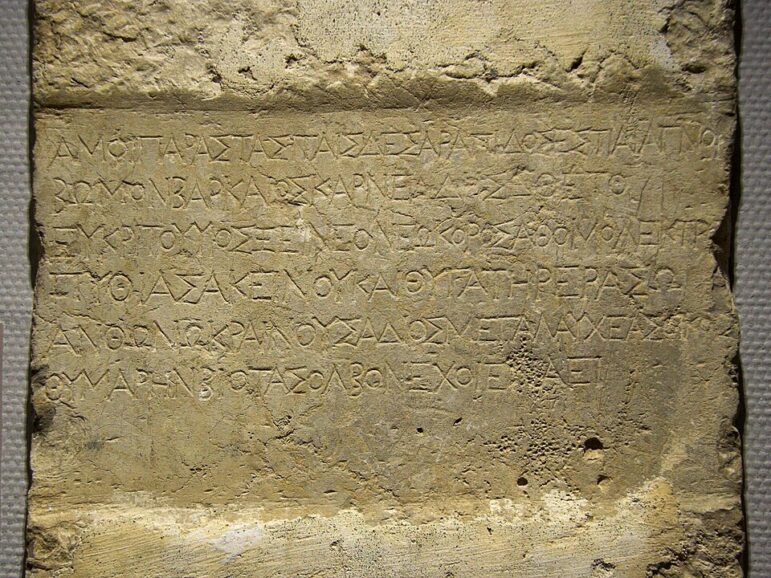 ΑΜΟΙΠΑΡΑΣΤΑΣΤΑΣΔΕΣΑΡΑΠΙΔΟΣΕΣΤΙΑΙΑΓΝΟΝ
ΒΩΜΟΝΒΑΡΚΑΙΟΣΚΑΡΝΕΑΔΑΣΕΘΕΤΟ
ΕΥΚΡΙΤΟΥΥΙΟΣΞΕΙΝΕΟΝΕΩΚΟΡΟΣΑΘΟΜΟΛΕΚΤΡ
ΠΥΘΙΑΣΑΚΕΙΝΟΥΚΑΙΘΥΓΑΤΗΡΕΡΑΣΩ
ΑΝΘΩΝΩΚΡΑΙΝΟΥΣΑΔΟΣΜΕΓΑΛΑΥΧΕΑΣ
ΘΥΜΑΡΗΝΒΙΟΤΑΣΟΛΒΟΝΕΧΟΙΕΝΑΕΙ